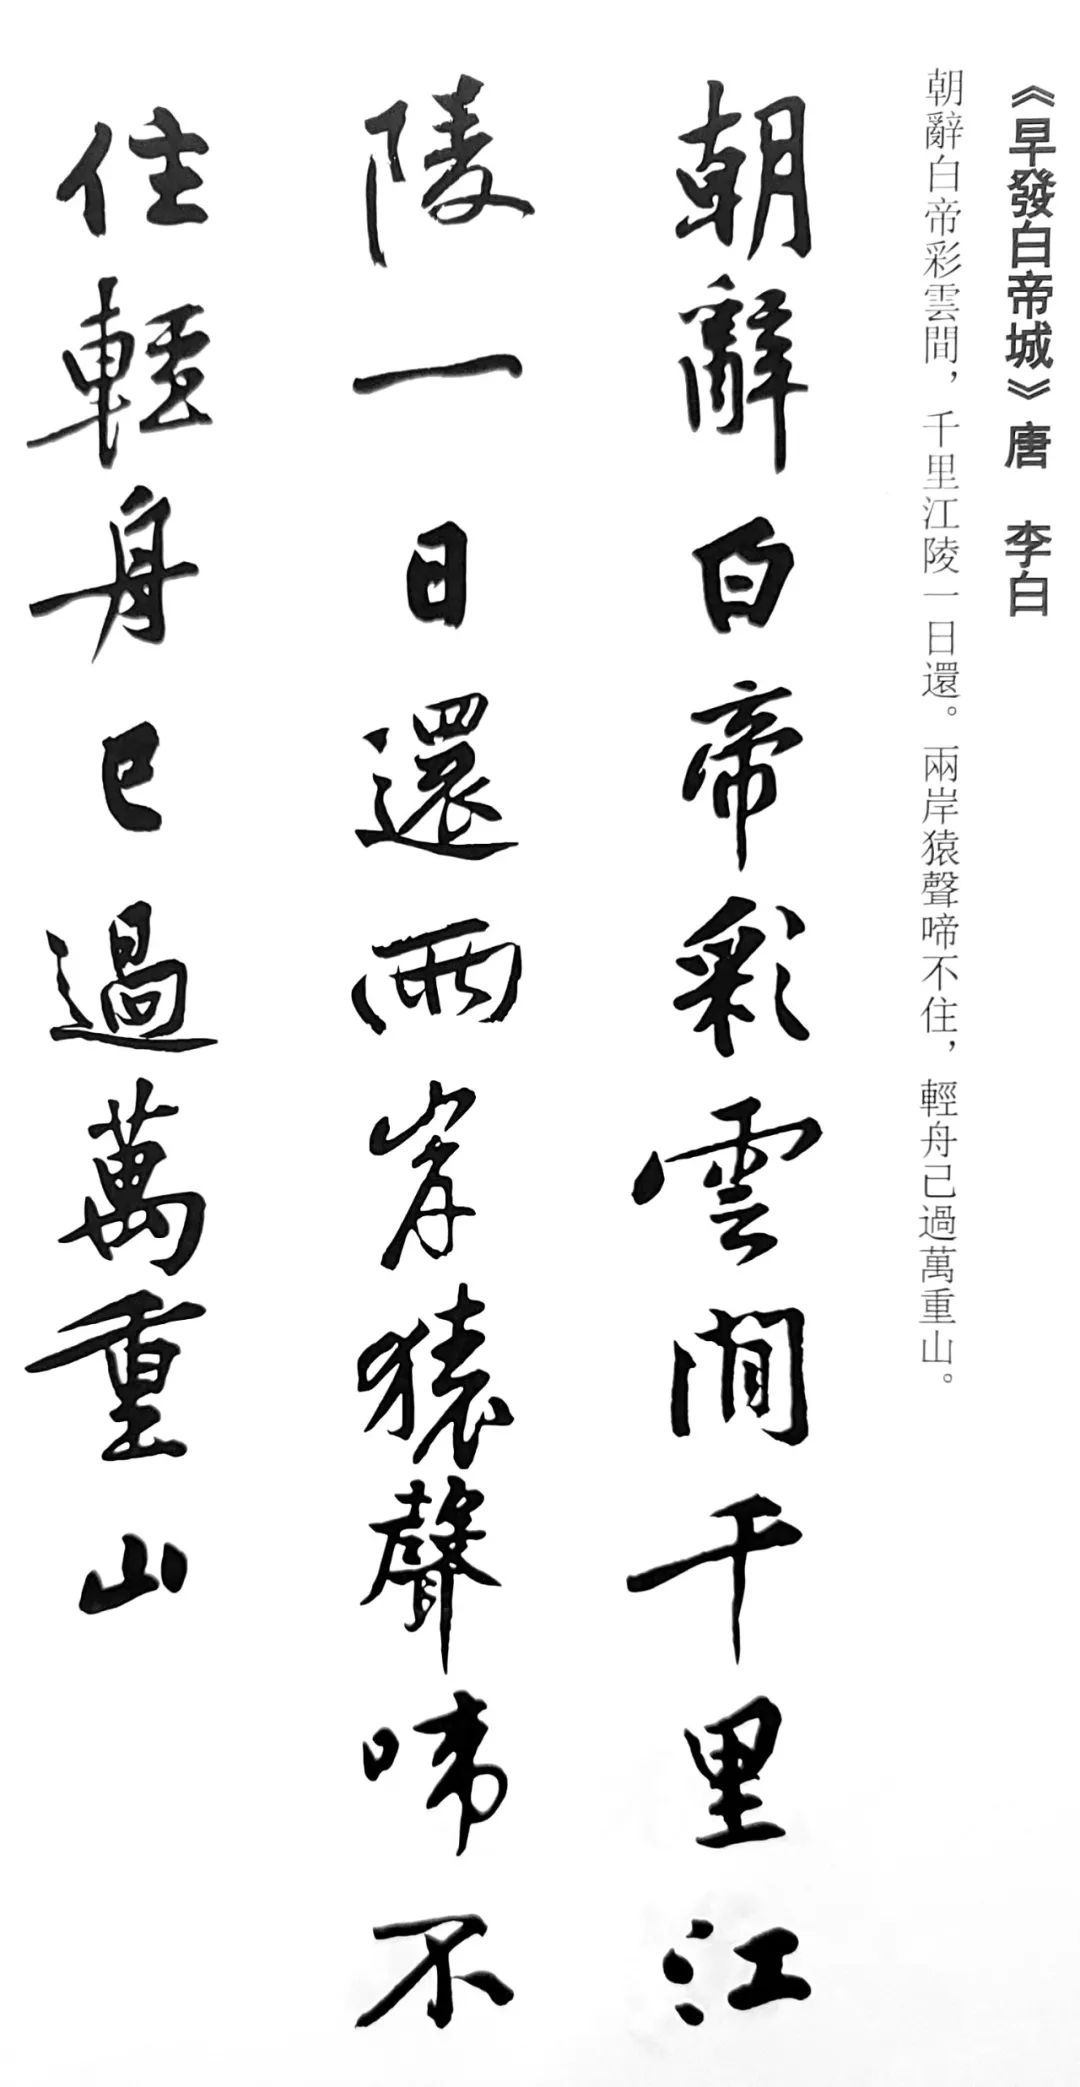 《早發白帝城》唐　李白
朝辭白帝彩雲間，千里江陵一日還。兩岸猿聲啼不住，輕舟已過萬重山。
朝辭白帝彩雲間千里江
陵一日還兩岸猿聲啼不
住輕舟已過萬重山